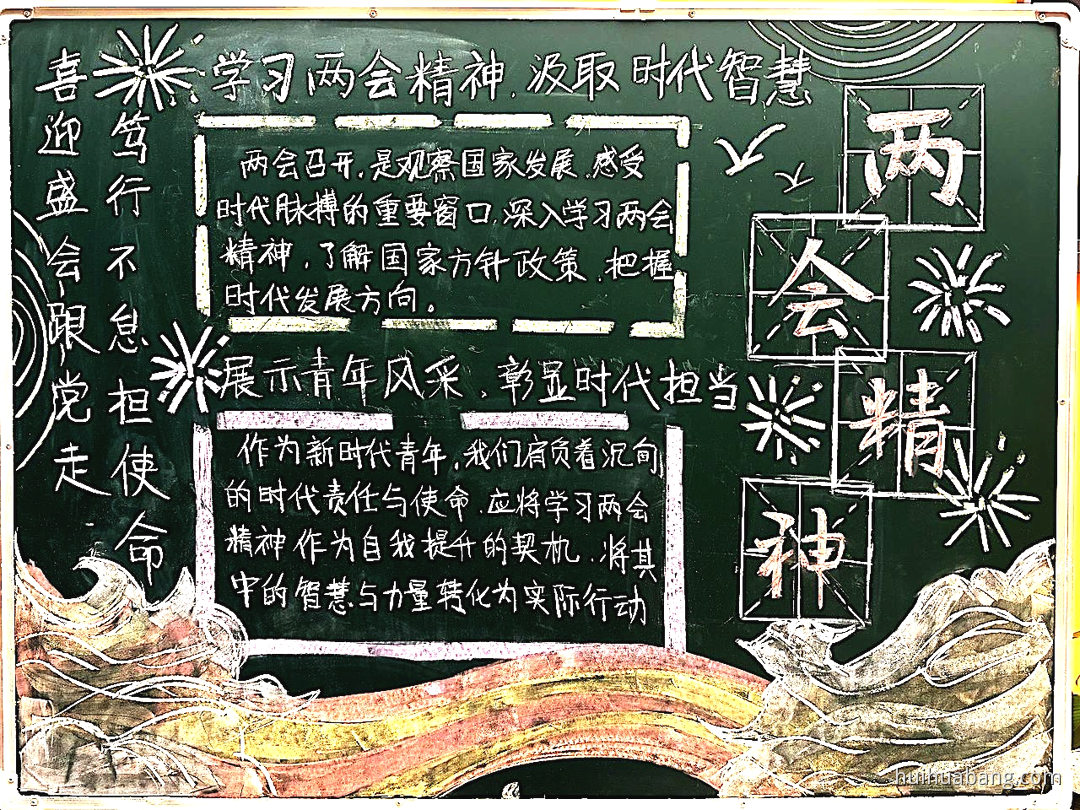 喜迎盛会跟党走
笃行不息担使命
学习两会精神，汲取时代智慧
两会召开，是观察国家发展，感受
时代脉搏的重要窗口，深入学习两会
精神，了解国家方针政策，把握
时代发展方向。
展示青年风采，彰显时代担当
作为新时代青年，我们肩负着沉甸
的时代责任与使命，应将学习两会
精神作为自我提升的契机，将其
中的智慧与力量转化为实际行动
两
会
精
神
huihuabang.com